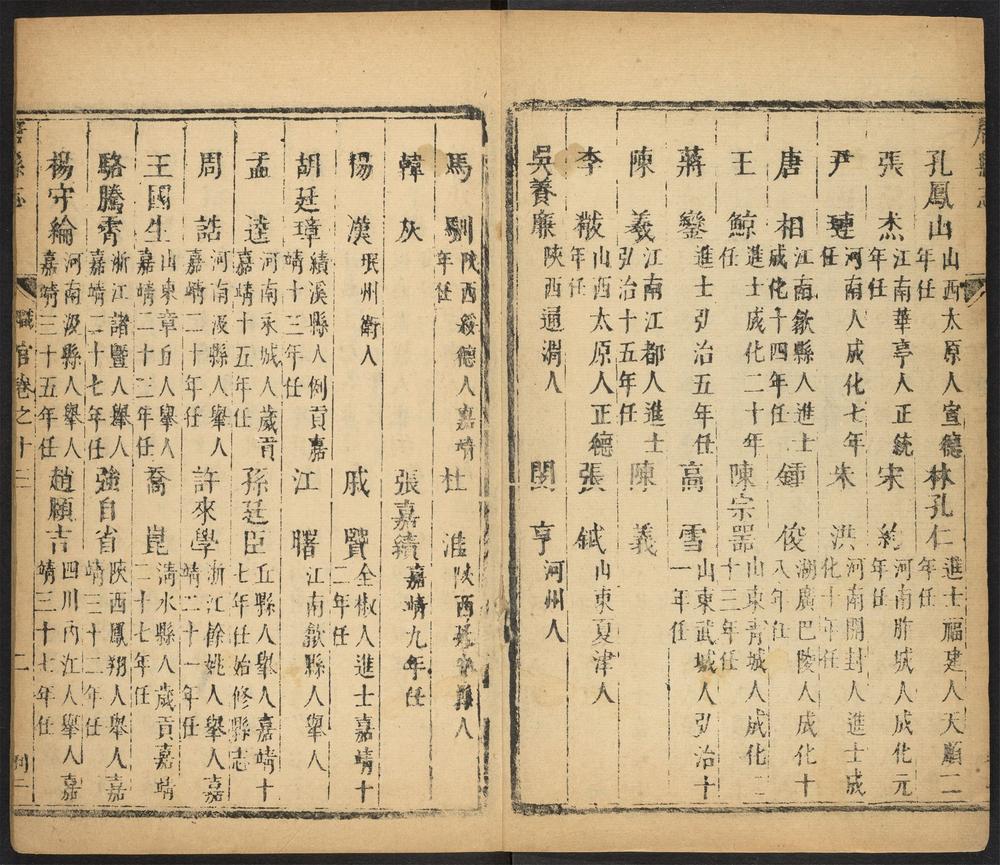 孔鳳山 山西太原人宣德年任 林孔仁 進士福建人天順二年任
張杰 江南華亭人正統年任 宋 河南胙城人成化元年任
尹璉 河南人成化七年任 朱洪 河南開封人進士成化十年任
唐相 江南歙縣人進士成化十四年任 鍾俊 湖廣巴陵人成化十八年任
王鯨 進士成化二十年任 陳宗器 山東青城人成化二十三年任
蔣鑾 進士弘治五年任 高雪 山東武城人弘治十一年任
陳羲 江南江都人進士弘治十五年任 陳義
李黻 山西太原人正德年任 張鉞 山東夏津人
吳養廉 陝西通渭人 閔亨 河州人
馬馴 陝西綏德人嘉靖年任 杜淮 陝西延安縣人
韓灰 張嘉績 嘉靖九年任
楊漢 珉州衛人 戚賢 全椒人進士嘉靖十二年任
胡廷璋 績溪縣人例貢嘉靖十三年任 江曙 江南歙縣人舉人
孟逵 河南永城人歲貢嘉靖十五年任 孫廷臣 丘縣人舉人嘉靖十七年任始修縣志
周誥 河南汲縣人舉人嘉靖二十年任 許來學 浙江餘姚人舉人嘉靖二十一年任
王國生 山東章丘人舉人嘉靖二十三年任 喬崑 清水縣人歲貢嘉靖二十七年任
駱騰霄 浙江諸暨人舉人嘉靖二十七年任 強自省 陝西鳳翔人舉人嘉靖三十二年任
楊守綸 河南汲縣人舉人嘉靖三十五年任 趙願吉 四川內江人舉人嘉靖三十七年任
縣志 職官卷之十三 二